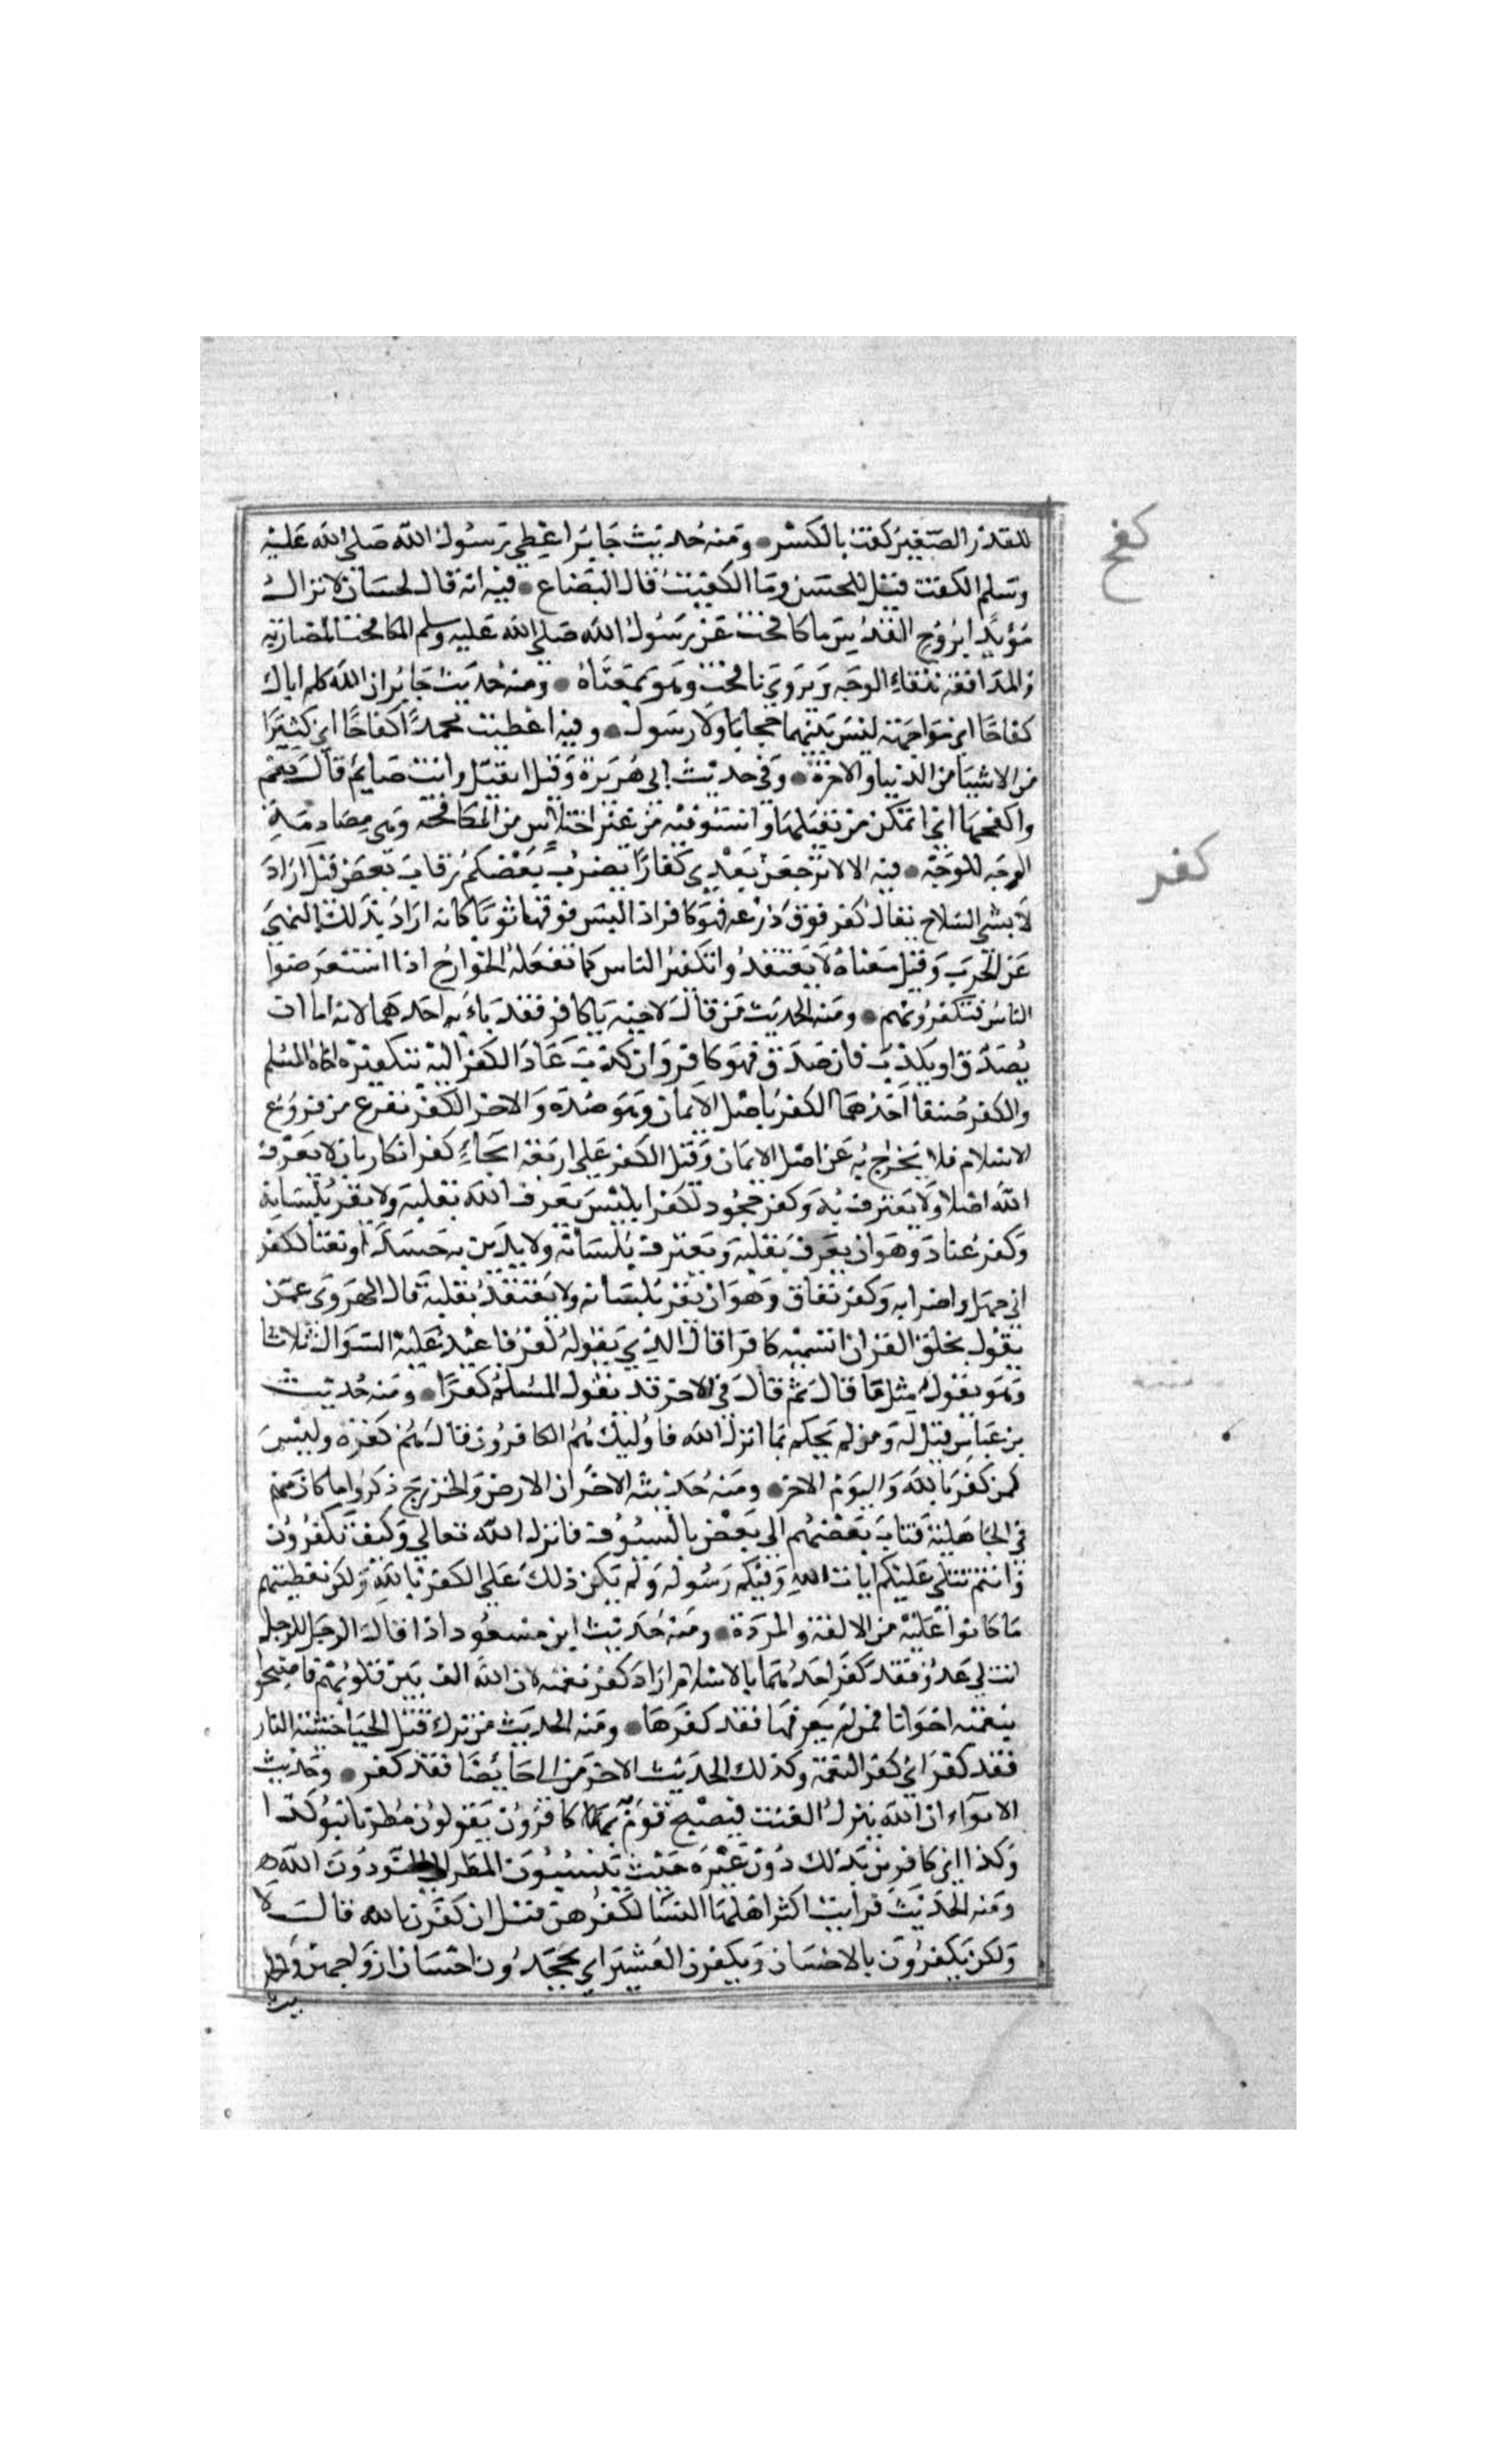 للقدر الصغير كفت بالكسر ومنه حديث جابر اعطي رسول الله صلى الله عليه
كفح
وسلم الكفيت قيل للحسن وما الكفيت قال البضاع فيه انه قال لحسان لا تزال
مؤيدا بروح القدس ما كافحت عن رسول الله صلى الله عليه وسلم المكافحة المضاربه
والمدافعه تلقاء الوجه ويروي نافحت وهو بمعناه ومنه حديث جابر ان الله كلم اباك
كفاحا اي مواجهة ليس بينهما حجابا ولا رسول وفيه اعطيت محمدا كفاحا اي كثيرا
من الاشيا من الدنيا والاخرة وفي حديث ابي هريرة وقيل اتقبل وانت صايم قال نعم
واكفحها اي اتمكن من تقبيلها واستوفيه من غير اختلاس من المكافحه وهي مصادمة
كفر
الوجه للوجه فيه الا لا ترجعن بعدي كفارا يضرب بعضكم رقاب بعض قيل اراد
لابسي السلاح يقال كفر فوق درعه فهو كافر اذا لبس فوقها ثوبا كانه اراد بذلك النهي
عن الحرب وقيل معناه لا يعتقد وا تكفير الناس كما تفعله الخوارج اذا استعرضوا
الناس فتكفرونهم ومنه الحديث من قال لاخيه يا كافر فقد باء به احدهما لانه اما ان
يصدق او يكذب فان صدق فهو كافر وان كذب عاد الكفر اليه بتكفيره اخاه المسلم
والكفر صنفا احدهما الكفر باصل الايمان وهو ضده والاخر الكفر بفرع من فروع
الاسلام فلا يخرج به عن اصل الايمان وقيل الكفر على اربعة انحاء كفر انكار بان لا يعرف
الله اصلا ولا يعترف به وكفر جحود ككفر ابليس يعرف الله بقلبه ولا يقر بلسانه
وكفر عناد وهو ان يعرف بقلبه ويعترف بلسانه ولا يدين به حسدا وبغيا لكفر
ابي جهل واضرابه وكفر نفاق وهو ان يقر بلسانه ولا يعتقد بقلبه قال الهروي عمن
يقول بخلق القران انسميه كافرا قال الذي يقوله كفر فاعيد عليه السوال ثلاثا
وهو يقول مثلما قال ثم قال في الاخر قد يقول المسلم كفرا ومنه حديث
بن عباس قيل له ومن لم يحكم بما انزل الله فاوليك هم الكافرون قال هم كفره وليس
كمن كفر بالله واليوم الاخر ومنه حديثه الاخر ان الاوس والخزرج ذكروا ما كان منهم
في الجاهلية فتاب بعضهم الى بعض بالسيوف فانزل الله تعالي وكيف تكفرون
وانتم تتلى عليكم ايات الله وفيكم رسوله ولم يكن ذلك على الكفر بالله ولكن تغطيتهم
ما كانوا عليه من الالفة والمودة ومنه حديث ابن مسعود اذا قال الرجل للرجل
انت لي عدو فقد كفر احدهما بالاسلام اراد كفر نعمته لان الله الف بين قلوبهم فاصبحوا
بنعمته اخوانا فمن لم يعرفها فقد كفرها ومنه الحديث من ترك قتل الحيا خشية النار
فقد كفر اي كفر النعمة وكذلك الحديث الاخر من اتى حائضا فقد كفر وحديث
الانواء ان الله ينزل الغيث فيصبح قوم بها كافرون يقولون مطرنا بنوء كذا
وكذا اي كافرين بذلك دون غيره حيث ينسبون المطر الى النوء دون الله
ومنه الحديث فرايت اكثر اهلها النسا لكفرهن قيل ان كفرن بالله قال لا
ولكن يكفرون بالاحسان ويكفرن العشير اي يجحدون احسان ازواجهن وحد
يث